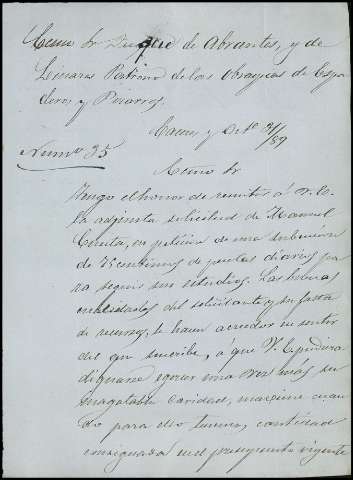 Excmo Sr Duque de Abrantes, y de
Linares Patrono de las Obras pias de Espa
dero, y Pizarros.
Caceres y Obe 31/89
Numo 35
Excmo Sr
Tengo el honor de remitir á V. E.
la adjunta solicitud de Manuel
en peticion de una subvencion
de 75 centimos de peseta diarios pa
ra seguir sus estudios. Las buenas
cualidades del solicitante y su falta
de recursos, le hacen acreedor en sentir
del que suscribe, á que V. E. pudiera
dignarse egercer una vez mas su
inagotable caridad, maxime cuan
do para ello tenemos, cantidad
consignada en el presupuesto vigente